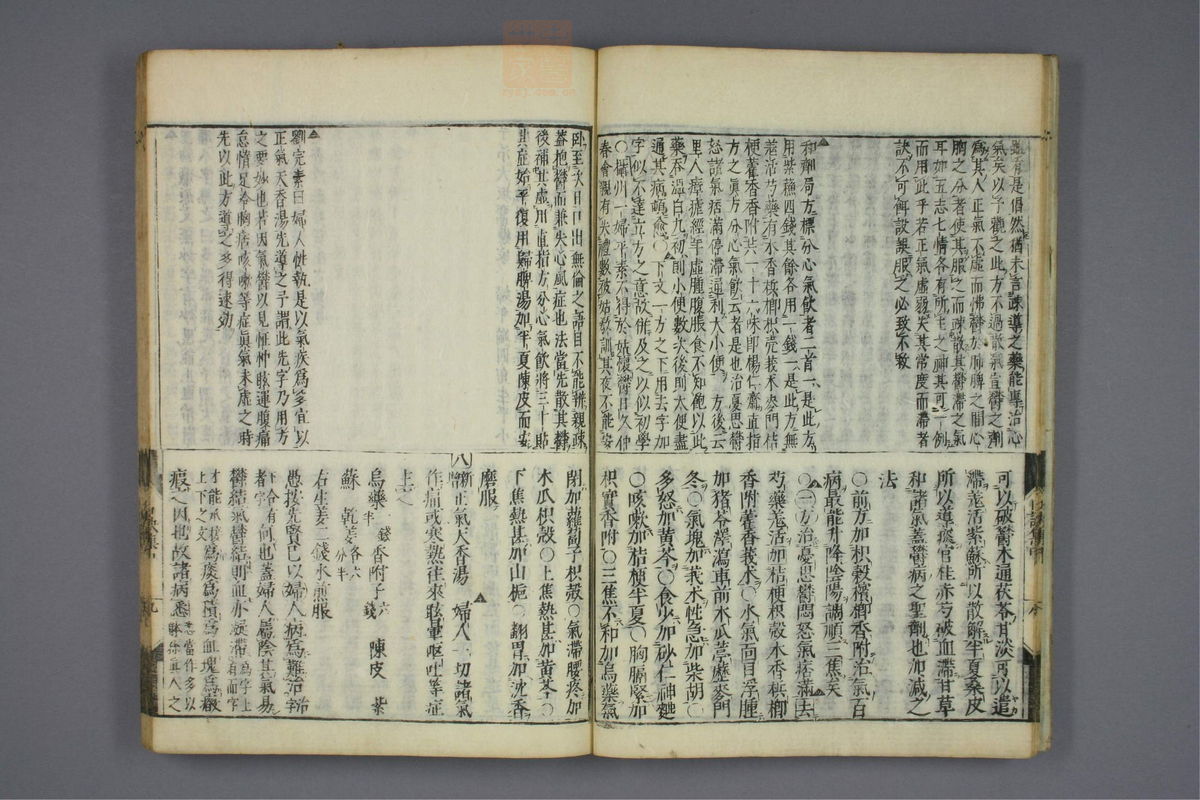 氣矣以予觀之此方不過散氣宣鬱之劑
為其人正氣不虛而怫鬱於肺脾之間心
胸之分者使其服之而疎散其鬱滯之氣
耳如五志七情各有所主之神其可一例
而用此乎若正氣虛弱失其常度而滯者
訣不可餌設誤服之必致不救
和劑局方標分心氣飲者二首一是此方
用紫蘇四錢其餘各用一錢一是此方無
羗活芍藥有木香檳榔枳壳莪朮麥門桔
梗藿香香附共一十六味即楊仁齋直指
方之眞方分心氣飲云者是也治憂思鬱
怒諸氣痞滿停滯通利大小便方後云
里人療瘧經年虛臕腹脹食不知飽以此
通其病頓愈○下文一方之下用去字加
字似不達立方之意故併及之以似初學
○攝州一婦平素不得於姑懷鬱日久仲
春會親有失禮數被姑教訓其夜不能安
可以破鬱木通茯苓甘淡可以道
滯羗活紫蘇所以散解半夏桑皮
所以導痰官桂赤芍破血滯甘草
和諸氣蓋鬱病之聖劑也加減之
法
○前方加枳榖檳榔香附治氣百
病最能升降陰陽調順三焦矣
○一方治憂思鬱悶怒氣痞滿去
芍藥羗活加桔梗枳殼木香檳榔
香附藿香莪朮○水氣面目浮腫
加猪苓澤瀉車前木瓜葶藶麥門
冬○氣塊加莪朮性急加柴胡○
多怒加黃芩○食少加砂仁神麯
○咳嗽加桔梗半夏○胸膈緊加
枳實香附○三焦不和加烏藥氣
卧至次日口出無倫之語目不能辨親疎
蓋抱鬱而兼失心風症也法當先散其鬱
後補正虛用直指方分心氣飲將三十貼
其症始平復用歸脾湯加半夏陳皮而安
劉完素曰婦人性執是以氣疾為多宜以
正氣天香湯先導之予謂此先字乃用方
之要妙也若因氣鬱以見怔忡眩運腹痛
怠惰足冷胸痞咳嗽等症眞氣未虛之時
先以此方導之多得速効
閉加蘿蔔子枳殼○氣滯腰疼加
木瓜枳殼○上焦熱甚加黃芩○
下焦熱甚加山梔○翻胃加沈香
磨服
八新正氣天香湯 婦人一切諸氣
作痛或寒熱往來眩暈嘔吐等症
上之
烏藥錢半香附子六錢 陳皮 紫
蘇 乾姜各六分半
右生姜三錢水煎服
愚按先賢巳以婦人病為難治
者何也蓋婦人屬陰甚氣易
鬱結氣鬱結則血亦凝滯
瘕之因也故諸病